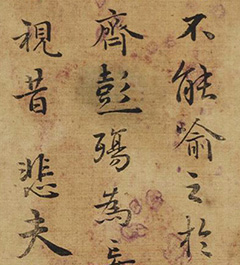 不能喻之於
齊彭殤為妄
視昔悲夫